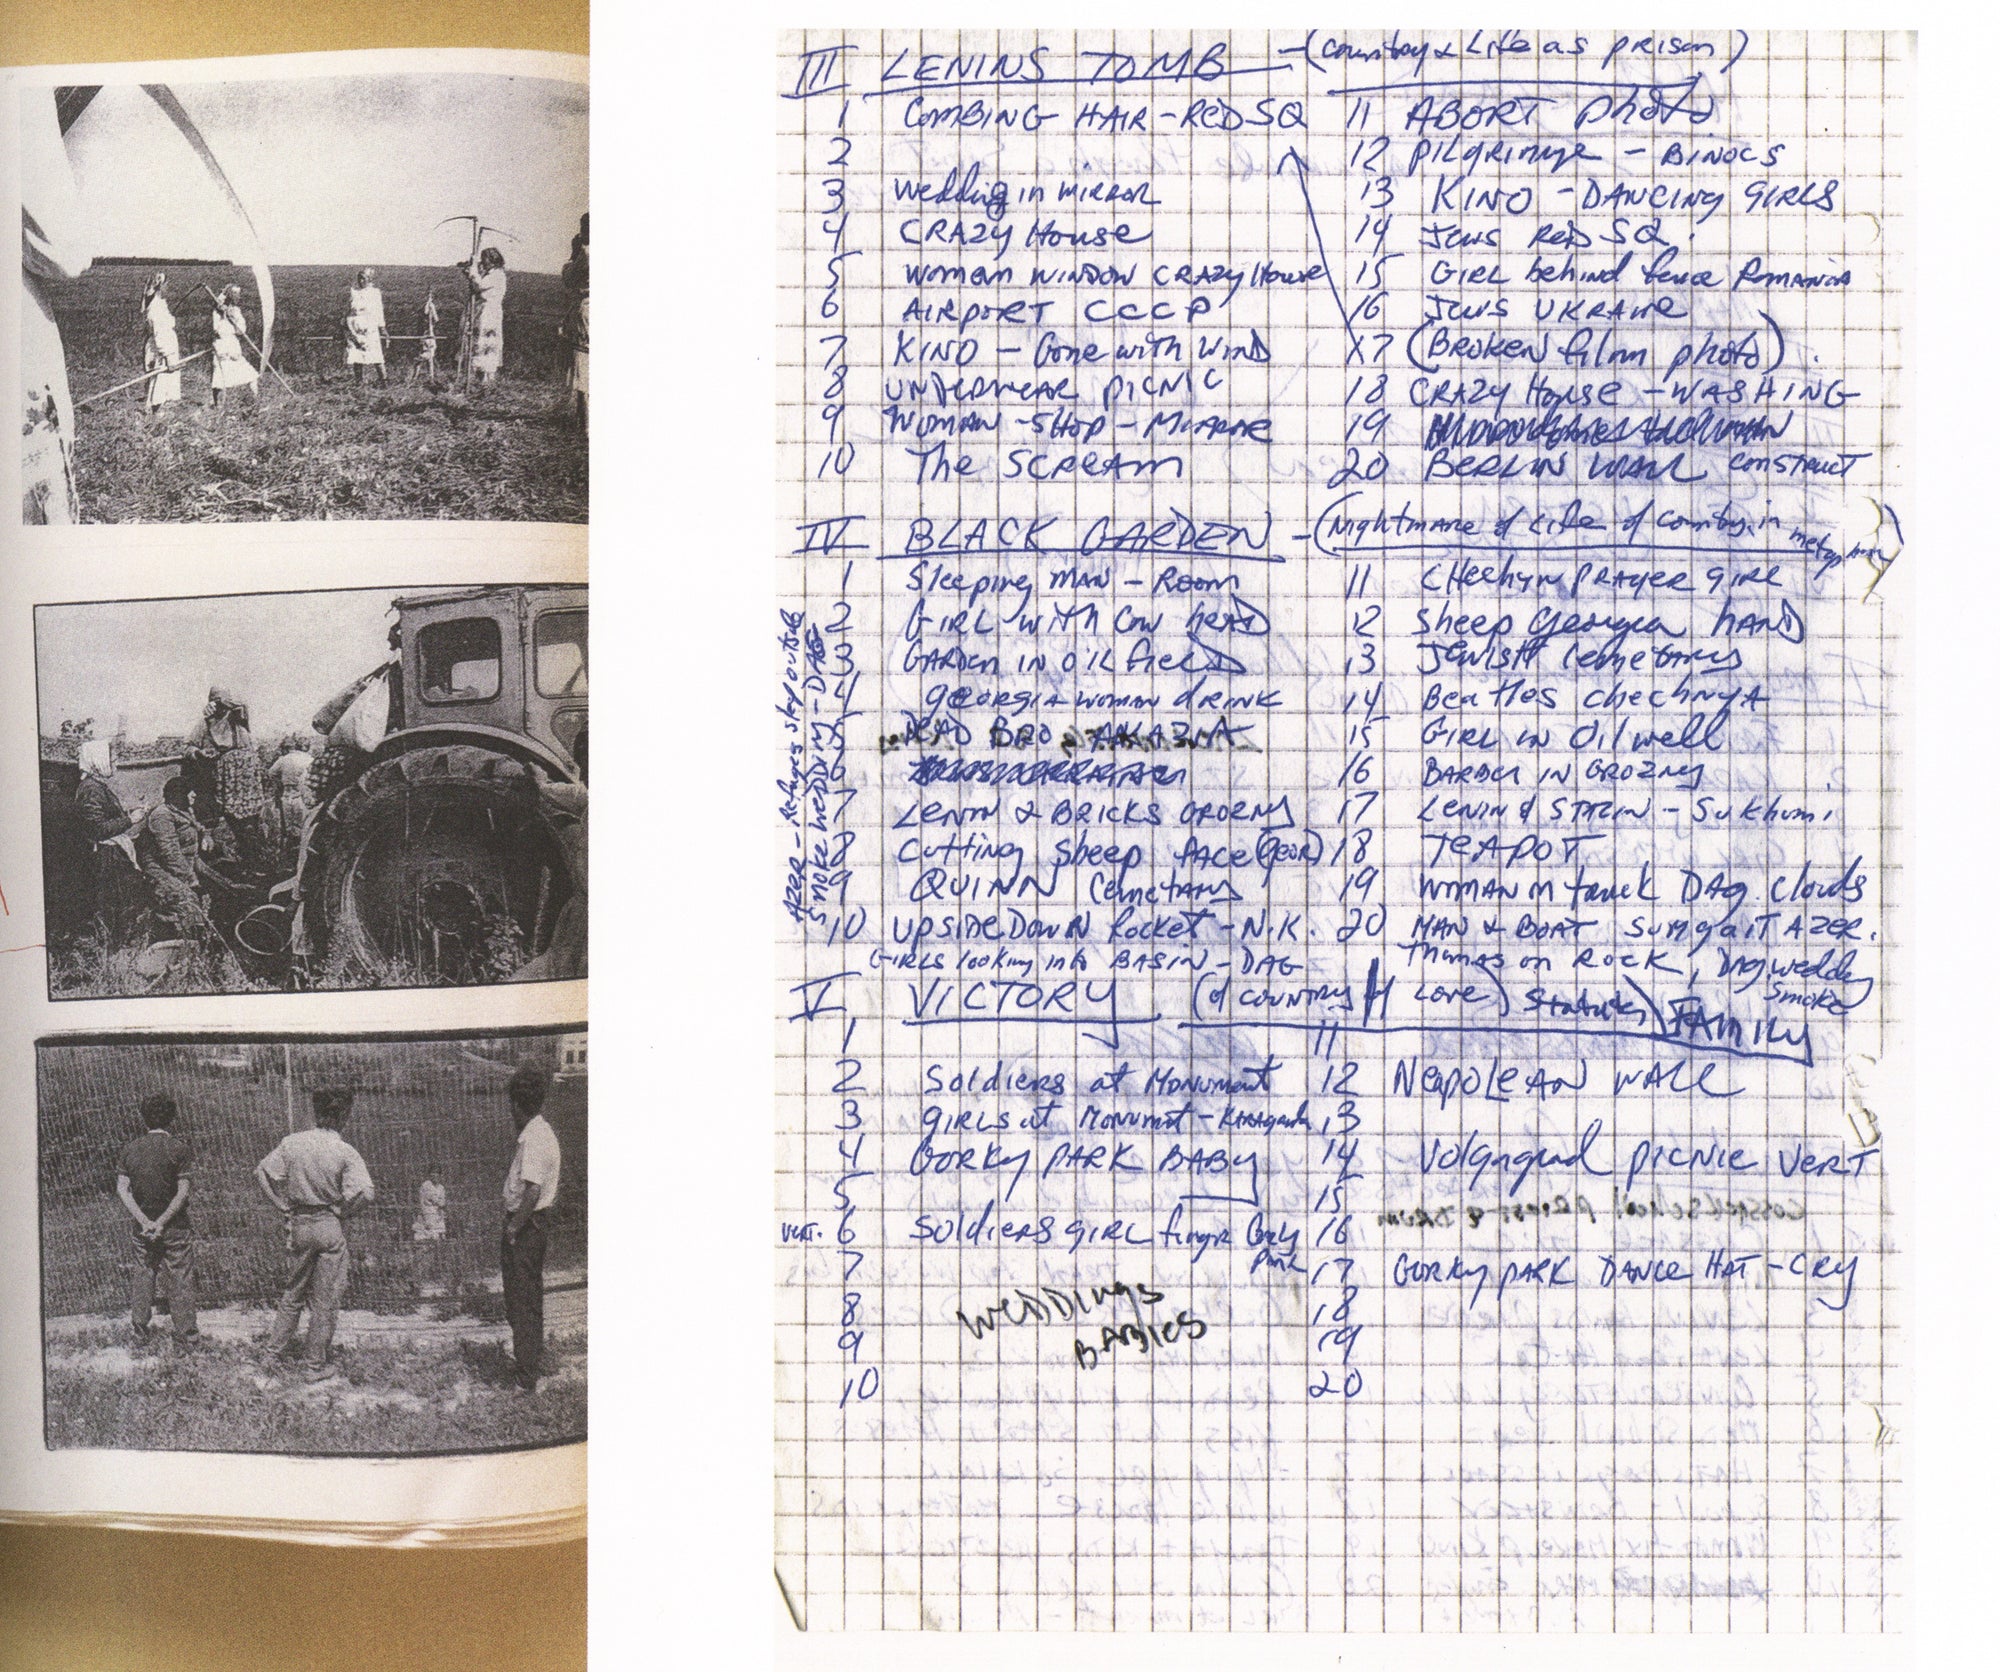 III LENINS TOMB - (Country & Life as prison)
1 COMBING HAIR - RED SQ
2
3 Wedding in MIRROR
4 CRAZY House
5 WOMEN WINDOW CRAZY House
6 AIRPORT CCCP
7 KINO - Gone with WIND
8 UNDERWEAR PICNIC
9 WOMAN - SHOP -
10 The SCREAM
11 ABORT photo
12 PILGRIMAGE - BINOCS
13 KINO - DANCING GIRLS
14 Jews RED SQ.
15 GIRL behind fence ROMANIA
16 Jews UKRAINE
17 (BROKEN film photo).
18 CRAZY House - WASHING
19
20 BERLIN WALL CONSTRUCT
IV BLACK GARDEN - (Nightmare of Life of Country in metaphor)
1 Sleeping MAN - Room
2 GIRL with Cow heAD
3 GARDEN IN OIL FIELD
4 georgia woman drink
5 DEAD BRO
6
7 LENIN & BRICKS GROZNY
8 Cutting Sheep face (geor)
9 QUINN Cemetary
10 UPSIDE DOWN Rocket - N.K.
GIRLS looking into BASIN - DAG
AZER - Refuges step outside
SMOKE WEDDING - DAG
11 CHechyn PRAYER GIRL
12 Sheep Georgia hAND
13 JewISH Cemetary
14 Beatles chechnyA
15 GIRL IN Oil well
16 IN GROZNY
17 LENIN & STALIN - Sukhumi
18 TEAPOT
19 WOMAN in truck DAG. Clouds
20 MAN & BOAT SUMgaiT AZER.
Thomas on ROCK, DAg wedding
Smoke
V VICTORY (of COUNTRY of Love) FAMILY
1
2 Soldiers at MONUMENT
3 GIRLS at MONUMENT - KARAGANDA
4 GORKY PARK BABY
5
VERT. 6 SOLDIERS GIRL finger Gorky
Park
7
8
9
10
WEDDINgS
BABIES
11
12 NeapOLEAN WALL
13
14 Volgagrad PICNIC VERT
15
16
17 GORKY PARK DANCE HAT - CRY
18
19
20